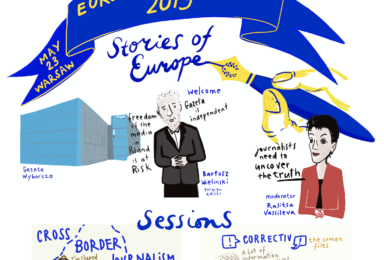 EURO
2019
MAY
23
WARSAW
Stories of
Europe
Welcome
Gazeta
is
independent
freedom
of the
media
in
Poland
is at
RISK
Gazeta
Wyborcza
Bartosz
Wieliński
foreign
editor
journalists
need to
uncover
the truth
moderator
Ralitsa
Vassileva
Sessions
CROSS
BORDER
JOURNALISM
CORRECTIV
the cumex
files
A Lot of
information